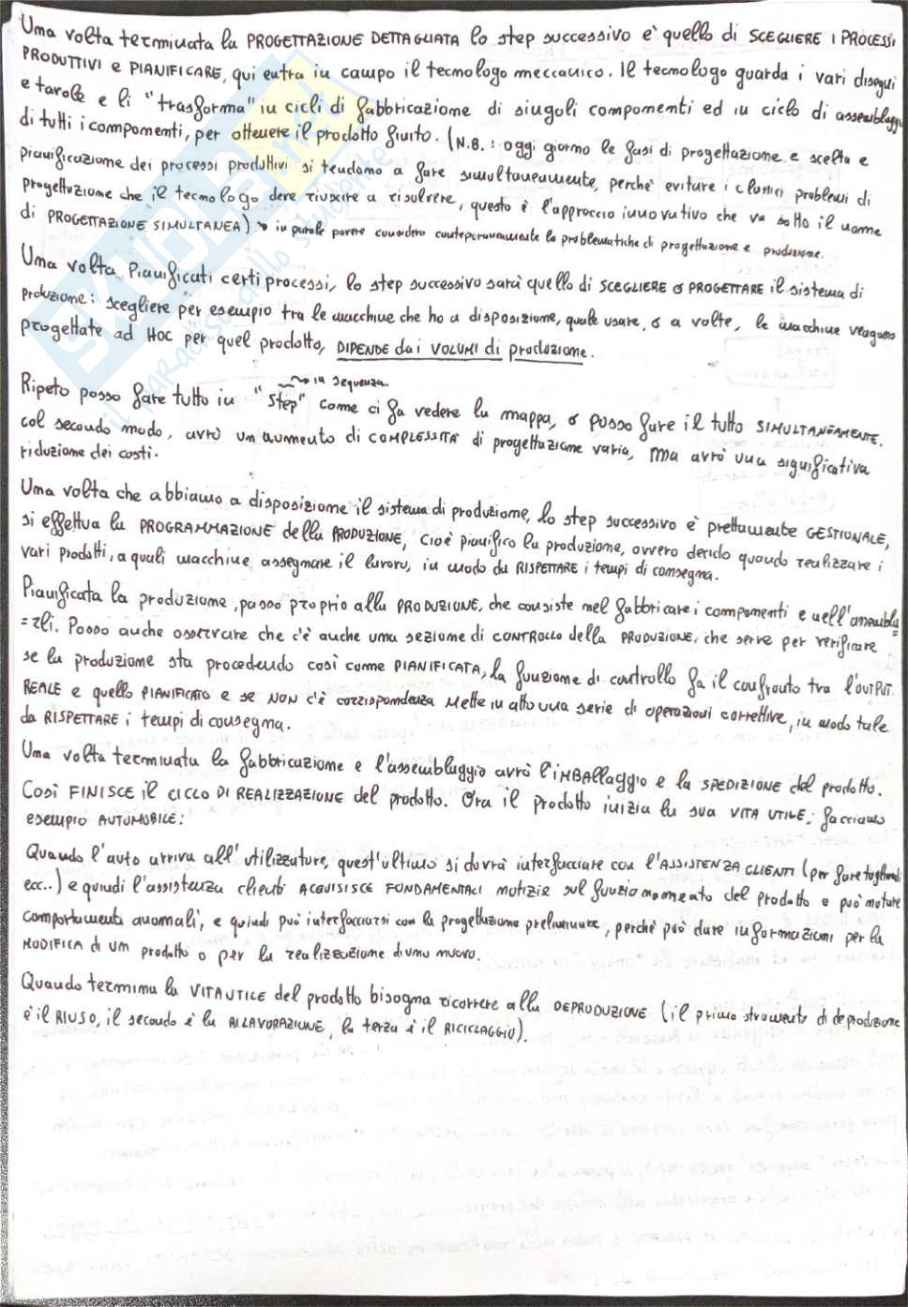 Una volta terminata la PROGETTAZIONE DETTAGLIATA lo step successivo e' quello di SCEGLIERE I PROCESSI
PRODUTTIVI e PIANIFICARE, qui entra in campo il tecnologo meccanico. Il tecnologo guarda i vari disegni
e tavole e li "trasforma" in cicli di fabbricazione di singoli componenti ed in ciclo di assemblaggio
di tutti i componenti, per ottenere il prodotto finito. (N.B.: oggi giorno le fasi di progettazione e scelta e
pianificazione dei processi produttivi si tendono a fare simultaneamente, perchè evitare i classici problemi di
progettazione che il tecnologo deve riuscire a risolvere, questo è l'approccio innovativo che va sotto il nome
di PROGETTAZIONE SIMULTANEA) → in parole povere considero contemporaneamente le problematiche di progettazione e produzione.
Una volta Pianificati certi processi, lo step successivo sarà quello di SCEGLIERE o PROGETTARE il sistema di
produzione: scegliere per esempio tra le macchine che ho a disposizione, quale usare, o a volte, le macchine vengono
progettate ad HOC per quel prodotto, DIPENDE dai VOLUMI di produzione.
Ripeto posso fare tutto in "step" come ci fa vedere la mappa, o posso fare il tutto SIMULTANEAMENTE.
→ in sequenza
col secondo modo, avrò un aumento di COMPLESSITÀ di progettazione varia, ma avrò una significativa
riduzione dei costi.
Una volta che abbiamo a disposizione il sistema di produzione, lo step successivo è prettamente GESTIONALE,
si effettua la PROGRAMMAZIONE della PRODUZIONE, cioè pianifico la produzione, ovvero decido quando realizzare i
vari prodotti, a quali macchine assegnare il lavoro, in modo da RISPETTARE i tempi di consegna.
Pianificata la produzione, passo proprio alla PRODUZIONE, che consiste nel fabbricare i componenti e nell'assembla
=rli. Posso anche osservare che c'è anche una sezione di CONTROLLO della PRODUZIONE, che serve per verificare
se la produzione sta procedendo così come PIANIFICATA, la funzione di controllo fa il confronto tra l'OUTPUT
REALE e quello PIANIFICATO e se NON c'è corrispondenza mette in atto una serie di operazioni correttive, in modo tale
da RISPETTARE i tempi di consegna.
Una volta terminata la fabbricazione e l'assemblaggio avrò l'iMBAllaggio e la SPEDIZIONE del prodotto.
Così FINISCE il CICLO DI REALIZZAZIONE del prodotto. Ora il prodotto inizia la sua VITA UTILE; facciamo
esempio AUTOMOBILE:
Quando l'auto arriva all'utilizzatore, quest'ultimo si dovrà interfacciare con l'ASSISTENZA CLIENTI (per fare tagliandi
ecc..) e quindi l'assistenza clienti ACQUISISCE FONDAMENTALI notizie sul funzionamento del prodotto e può notare
comportamenti anomali, e quindi può interfacciarsi con la progettazione preliminare, perchè può dare informazioni per la
MODIFICA di un prodotto o per la realizzazione di uno nuovo.
Quando termina la VITA UTILE del prodotto bisogna ricorrere alla DEPRODUZIONE (il primo strumento di deproduzione
è il RIUSO, il secondo è la RILAVORAZIONE, la terza è il RICICLAGGIO).
SKUOLA.net
il paradiso dello studente